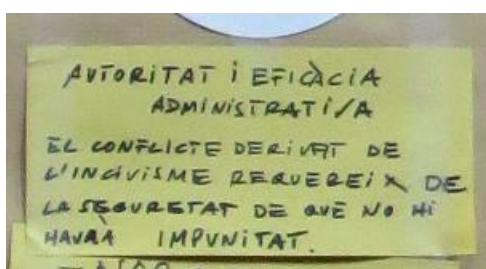 AUTORITAT I EFICÀCIA
ADMINISTRATIVA
EL CONFLICTE DERIVAT DE
L'INCIVISME REQUEREIX DE
LA SEGURETAT DE QUÈ NO HI
HAURÀ IMPUNITAT.